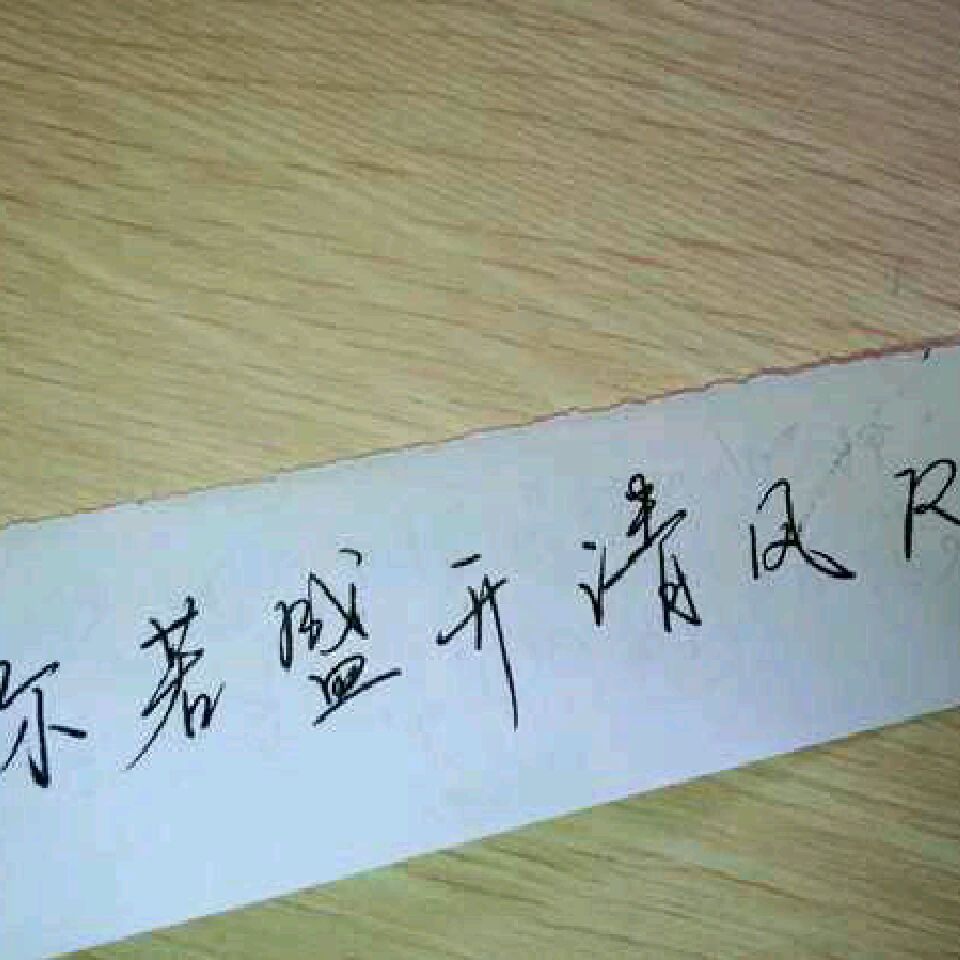 你若盛开清风